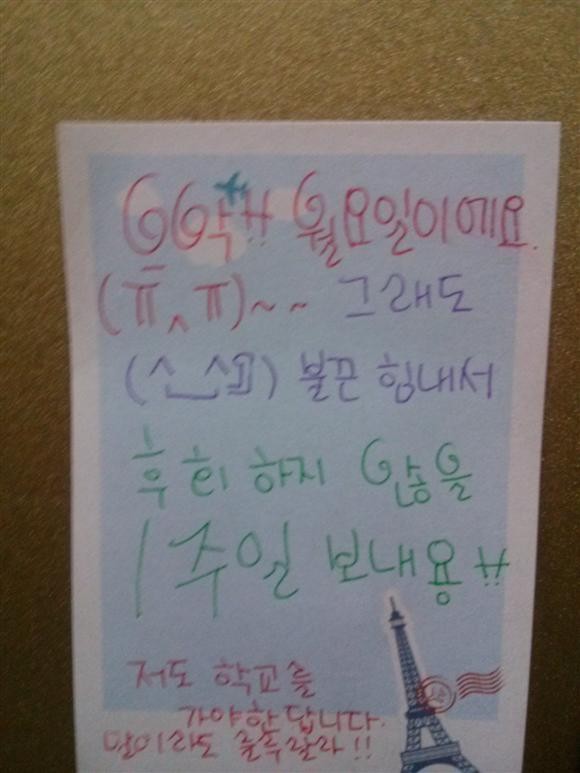 으악!! 월요일이에요.
(ㅠ^ㅠ)~~ 그래도
불끈 힘내서
후회 하지 않을
1주일 보내용!!
저도 학교를
가야한답니다.
말이라도 룰루랄라!!